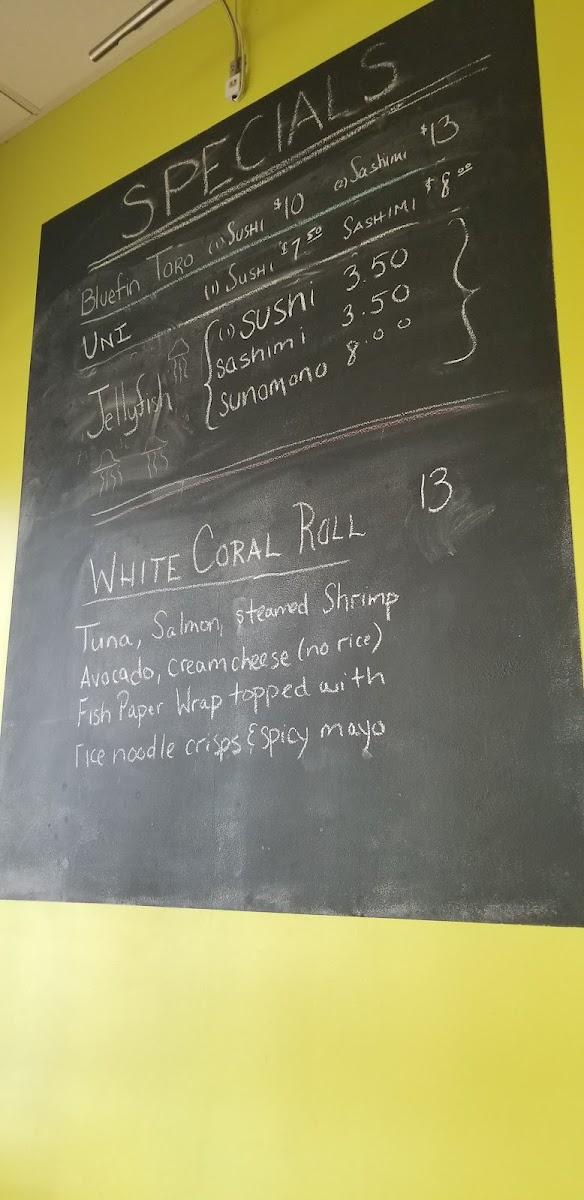 SPECIALS
Bluefin Toro (1) Sushi $10 (2) Sashimi $13
UNI (1) SUSHI $7.50 SASHIMI $8.00
Jellyfish (1) sushi 3.50
sashimi 3.50
sunomono 8.00
WHITE CORAL ROLL 13
Tuna, Salmon, steamed Shrimp
Avocado, cream cheese (no rice)
Fish Paper Wrap topped with
rice noodle crisps & spicy mayo